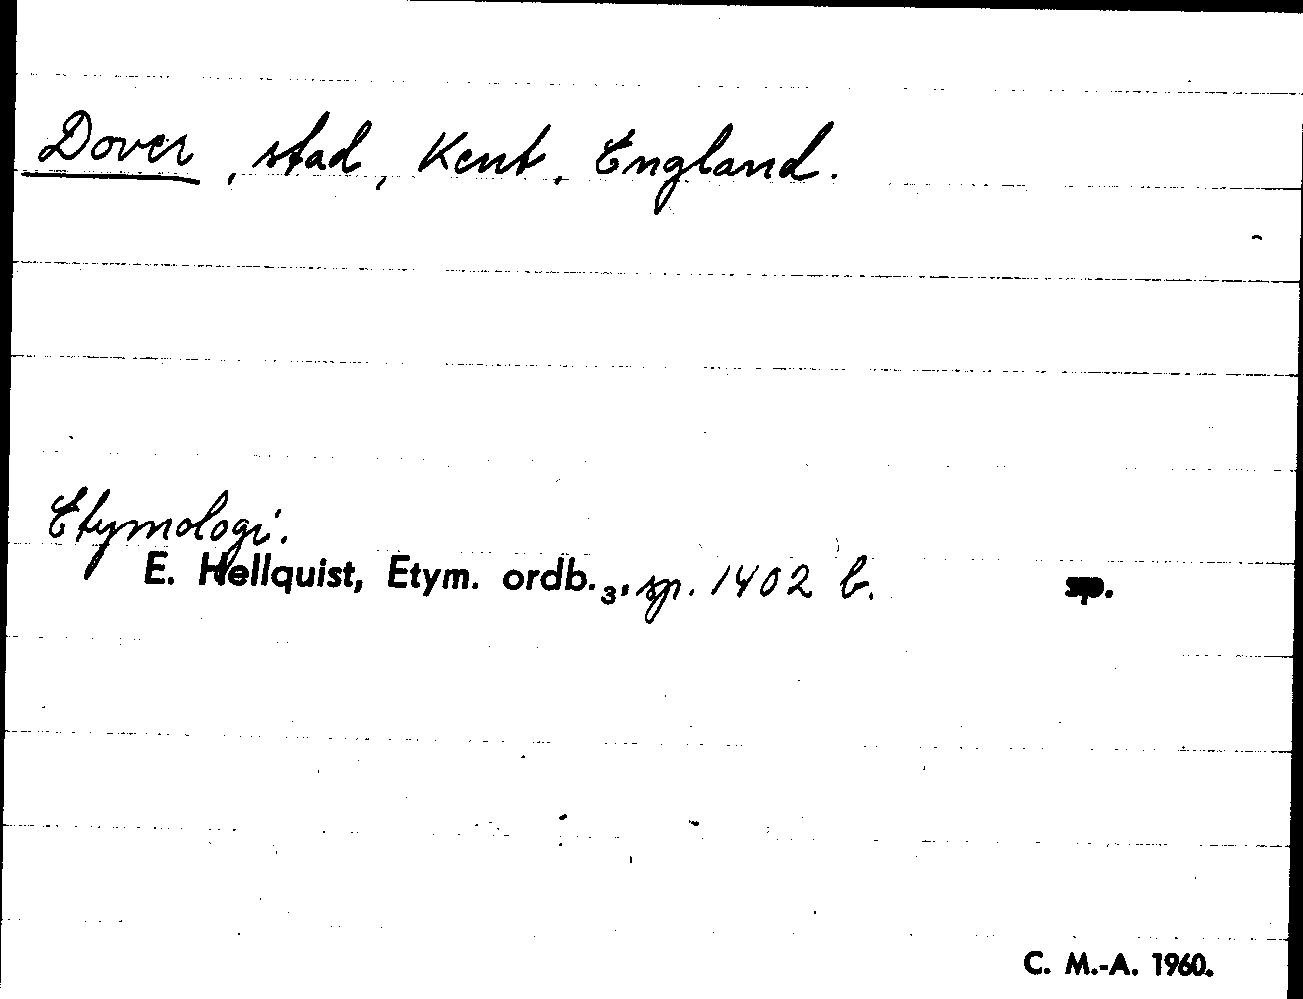 Dover, stad, Kent, England.
Etymologi.
E. Hellquist, Etym. ordb.₃, sp. 1402 b. sp.
C. M.-A. 1960.